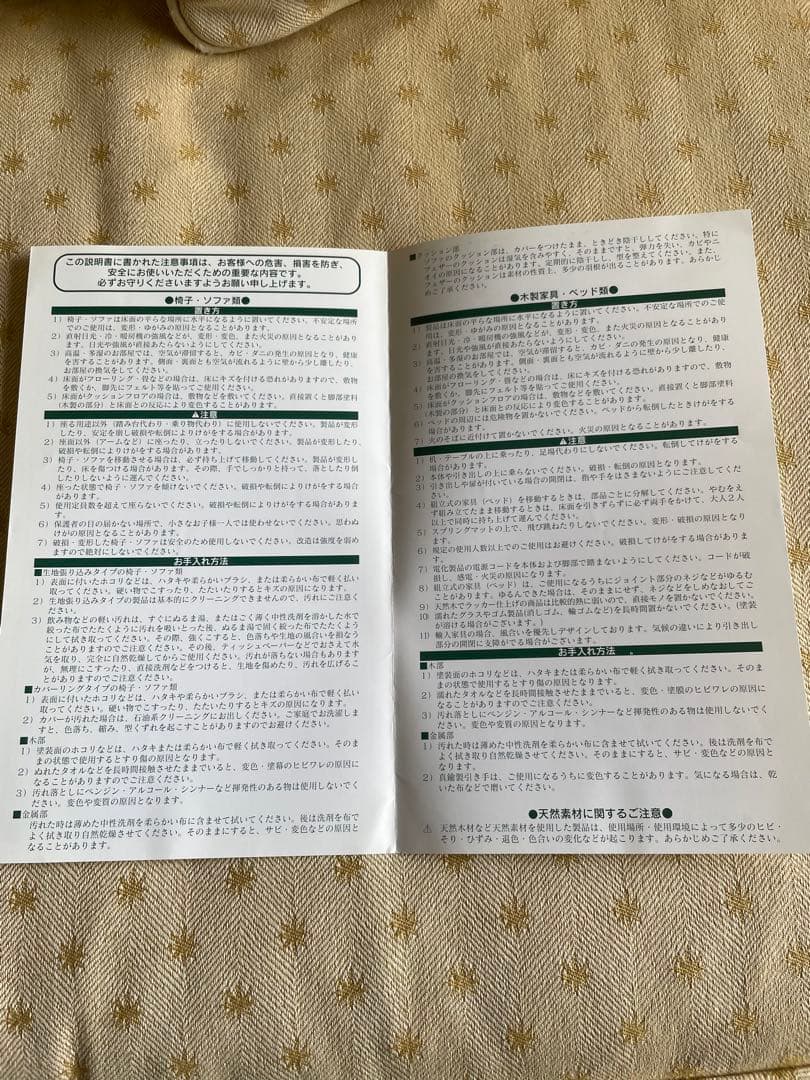 この説明書に書かれた注意事項は、お客様への危害、損害を防ぎ、
安全にお使いいただくための重要な内容です。
必ずお守りくださいますようお願い申し上げます。
●椅子・ソファ類●
置き方
1）椅子・ソファは床面の平らな場所に水平になるように置いてください。不安定な場所
でのご使用は、変形・ゆがみの原因となることがあります。
2）直射日光・冷・暖房機の強風などが、変形・変色、また火災の原因となることがあり
ます。日光や強風が直接あたらないようにしてください。
3）高温・多湿のお部屋では、空気が滞留すると、カビ・ダニの発生の原因となり、健康
を害することがあります。側面・裏面とも空気が流れるように壁から少し離したり、
お部屋の換気をしてください。
4）床面がフローリング・畳などの場合は、床にキズを付ける恐れがありますので、敷物
を敷くか、脚先にフェルト等を貼ってご使用ください。
5）床面がクッションフロアの場合は、敷物などを敷いてください。直接置くと脚部塗料
（木製の部分）と床面との反応により変色することがあります。
⚠注意
1）座る用途以外（踏み台代わり・乗り物代わり）に使用しないでください。製品が変形し
たり、安定を崩し破損や転倒によりけがをする場合があります。
2）座面以外（アームなど）に座ったり、立ったりしないでください。製品が変形したり、
破損や転倒によりけがをする場合があります。
3）椅子・ソファを移動させる場合は、必ず持ち上げて移動してください。製品が変形し
たり、床を傷つける場合があります。その際、手でしっかりと持って、落としたり倒
したりしないように運んでください。
4）座った状態で椅子・ソファを傾けないでください。破損や転倒によりけがをする場合
があります。
5）使用定員数を超えて座らないでください。破損や転倒によりけがをする場合がありま
す。
6）保護者の目の届かない場所で、小さなお子様一人では使わせないでください。思わぬ
けがの原因となることがあります。
7）破損・変形した椅子・ソファは安全のため使用しないでください。改造は強度を弱め
ますので絶対にしないでください。
お手入れ方法
■生地張り込みタイプの椅子・ソファ類
1）表面に付いたホコリなどは、ハタキや柔らかいブラシ、または柔らかい布で軽く払い
取ってください。硬い物でこすったり、たたいたりするとキズの原因になります。
2）生地張り込みタイプの製品は基本的にクリーニングできませんので、汚れにご注意く
ださい。
3）飲み物などの軽い汚れは、すぐにぬるま湯、またはごく薄く中性洗剤を溶かした水で
絞った布でたたくように汚れを吸いとった後、ぬるま湯で固く絞った布でたたくよう
にして拭き取ってください。その際、強くこすると、色落ちや生地の風合いを損なう
ことがありますのでご注意ください。その後、ティッシュペーパーなどでおさえて水
気を取り、完全に自然乾燥してからご使用ください。汚れが落ちない場合もあります
が、無理にこすったり、直接洗剤などをつけると、生地を傷めたり、汚れを広げるこ
とがありますのでご注意ください。
■カバーリングタイプの椅子・ソファ類
1）表面に付いたホコリなどは、ハタキや柔らかいブラシ、または柔らかい布で軽く払い
取ってください。硬い物でこすったり、たたいたりするとキズの原因になります。
2）カバーが汚れた場合は、石油系クリーニングにお出しください。ご家庭でお洗濯しま
すと、色落ち、縮み、型くずれを起こすことがありますのでお避けください。
■木部
1）塗装面のホコリなどは、ハタキまたは柔らかい布で軽く拭き取ってください。そのま
まの状態で使用するとすり傷の原因となります。
2）ぬれたタオルなどを長時間接触させたままでいると、変色・塗幕のヒビワレの原因に
なることがありますのでご注意ください。
3）汚れ落としにベンジン・アルコール・シンナーなど揮発性のある物は使用しないでく
ださい。変色や変質の原因となります。
■金属部
汚れた時は薄めた中性洗剤を柔らかい布に含ませて拭いてください。後は洗剤を布で
よく拭き取り自然乾燥させてください。そのままにすると、サビ・変色などの原因と
なることがあります。
■クッション部
ソファのクッション部は、カバーをつけたまま、ときどき陰干ししてください。特に
フェザーのクッションは湿気を含みやすく、そのままですと、弾力を失い、カビやニ
オイの原因になることがあります。定期的に陰干しし、型を整えてください。また、
フェザーのクッションは素材の性質上、多少の羽根が出ることがあります。あらかじ
めご了承ください。
●木製家具・ベッド類●
置き方
1）製品は床面の平らな場所に水平になるように置いてください。不安定な場所でのご使
用は、変形・ゆがみの原因となることがあります。
2）直射日光・冷・暖房機の強風などが、変形・変色、また火災の原因となることがあり
ます。日光や強風が直接あたらないようにしてください。
3）高温・多湿のお部屋では、空気が滞留すると、カビ・ダニの発生の原因となり、健康
を害することがあります。側面・裏面とも空気が流れるように壁から少し離したり、
お部屋の換気をしてください。
4）床面がフローリング・畳などの場合は、床にキズを付ける恐れがありますので、敷物
を敷くか、脚先にフェルト等を貼ってご使用ください。
5）床面がクッションフロアの場合は、敷物などを敷いてください。直接置くと脚部塗料
（木製の部分）と床面との反応により変色することがあります。
6）ベッドの周辺には危険物を置かないでください。ベッドから転倒したときけがをする
場合があります。
7）火のそばに近付けて置かないでください。火災の原因となることがあります。
⚠注意
1）机・テーブルの上に乗ったり、足場代わりにしないでください。転倒してけがをする
場合があります。
2）本体や引き出しの上に乗らないでください。破損・転倒の原因となります。
3）引き出しや扉が付いている場合の開閉は、指や手をはさまないようにご注意してくだ
さい。
4）組立式の家具（ベッド）を移動するときは、部品ごとに分解してください。やむをえ
ず組み立てたまま移動するときは、床面を引きずらずに必ず両手をかけて、大人２人
以上で同時に持ち上げて運んでください。
5）スプリングマットの上で、飛び跳ねたりしないでください。変形・破損の原因となり
ます。
6）規定の使用人数以上でのご使用はお避けください。破損してけがをする場合がありま
す。
7）電化製品の電源コードを本体および脚部で踏まないようにしてください。コードが破
損し、感電・火災の原因になります。
8）組立式の家具（ベッド）は、ご使用になるうちにジョイント部分のネジなどがゆるむ
ことがあります。ゆるんできた場合は、そのままにせず、ネジなどをしめなおしてご
使用ください。
9）天然木でラッカー仕上げの商品は比較的熱に弱いので、直接モノを置かないでください。
10）濡れたグラスやゴム製品（消しゴム、輪ゴムなど）を長時間置かないでください。（塗装
が溶ける場合がございます。）
11）輸入家具の場合、風合いを優先しデザインしております。気候の違いにより引き出し
部分の開閉に支障がでる場合がございます。
お手入れ方法
■木部
1）塗装面のホコリなどは、ハタキまたは柔らかい布で軽く拭き取ってください。そのま
まの状態で使用するとすり傷の原因となります。
2）濡れたタオルなどを長時間接触させたままでいると、変色・塗膜のヒビワレの原因に
なることがありますのでご注意ください。
3）汚れ落としにベンジン・アルコール・シンナーなど揮発性のある物は使用しないでく
ださい。変色や変質の原因となります。
■金属部
1）汚れた時は薄めた中性洗剤を柔らかい布に含ませて拭いてください。後は洗剤を布で
よく拭き取り自然乾燥させてください。そのままにすると、サビ・変色などの原因と
なることがあります。
2）真鍮製引き手は、ご使用になるうちに変色することがあります。気になる場合は、乾
いた布などで磨いてください。
●天然素材に関するご注意●
⚠ 天然木材など天然素材を使用した製品は、使用場所・使用環境によって多少のヒビ・
そり・ひずみ・退色・色合いの変化などが起こります。あらかじめご了承ください。